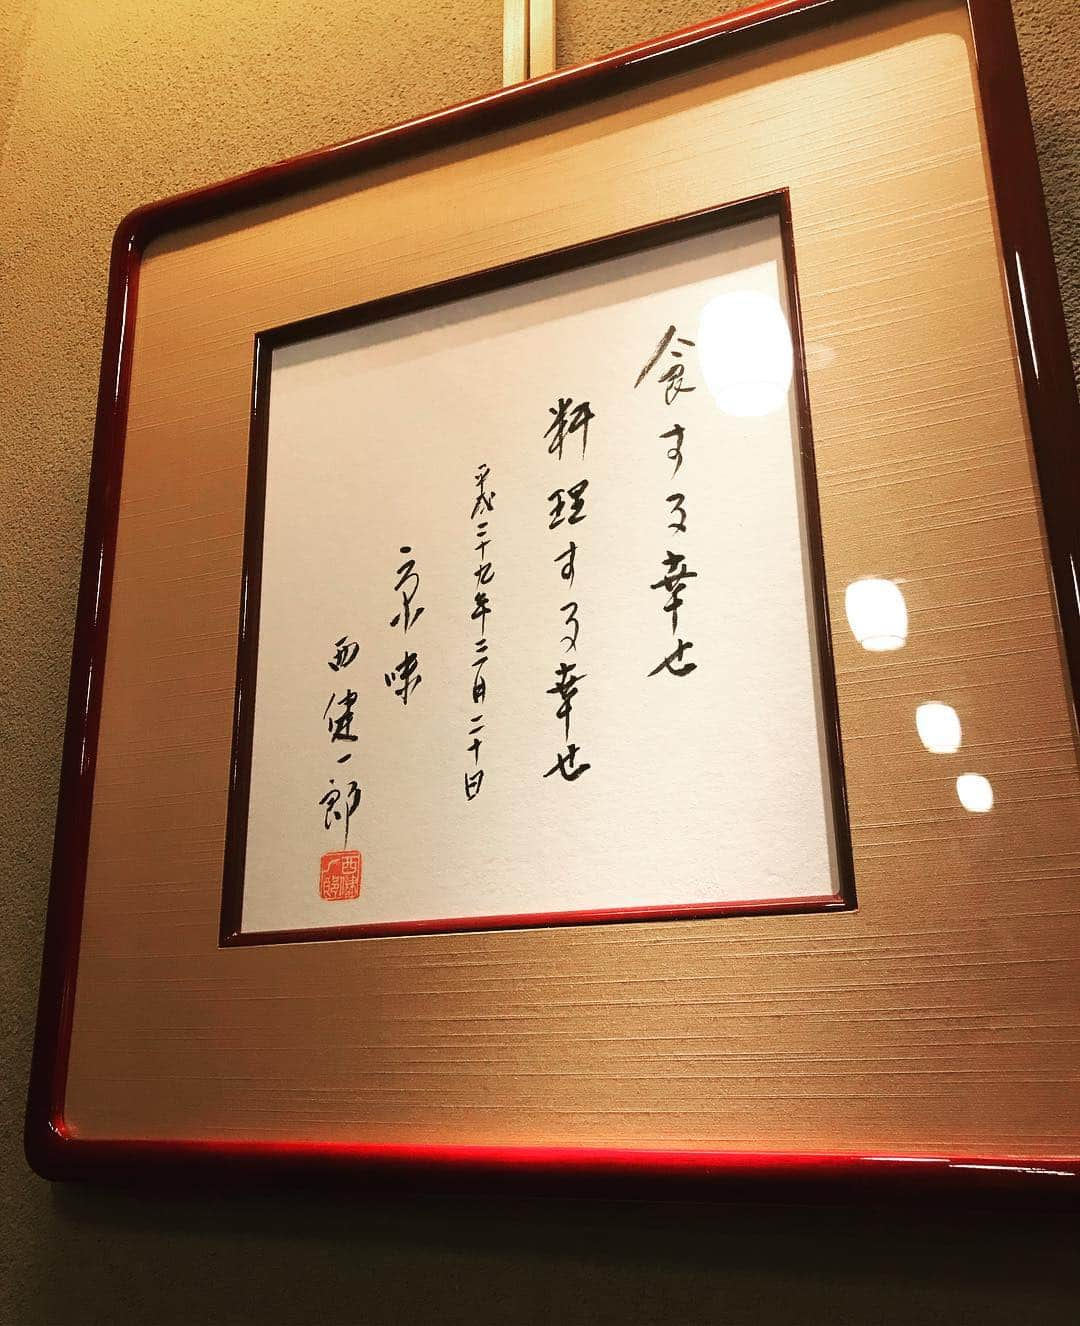 食する幸せ
料理する幸せ
平成二十九年三月二十日
京味
西健一郎
西健一郎